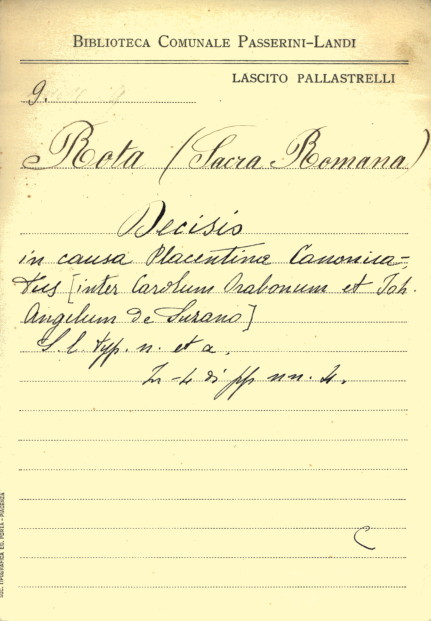 BIBLIOTECA COMUNALE PASSERINI-LANDI
LASCITO PALLASTRELLI
9.
Rota (Sacra Romana)
Decisio
in causa Placentinæ Canonica-
tus [inter Carolum Arabonum et Joh.
Angelum de Surano]
S. l. typ. n. et a.
In-4 di pp. nn. 4.
C